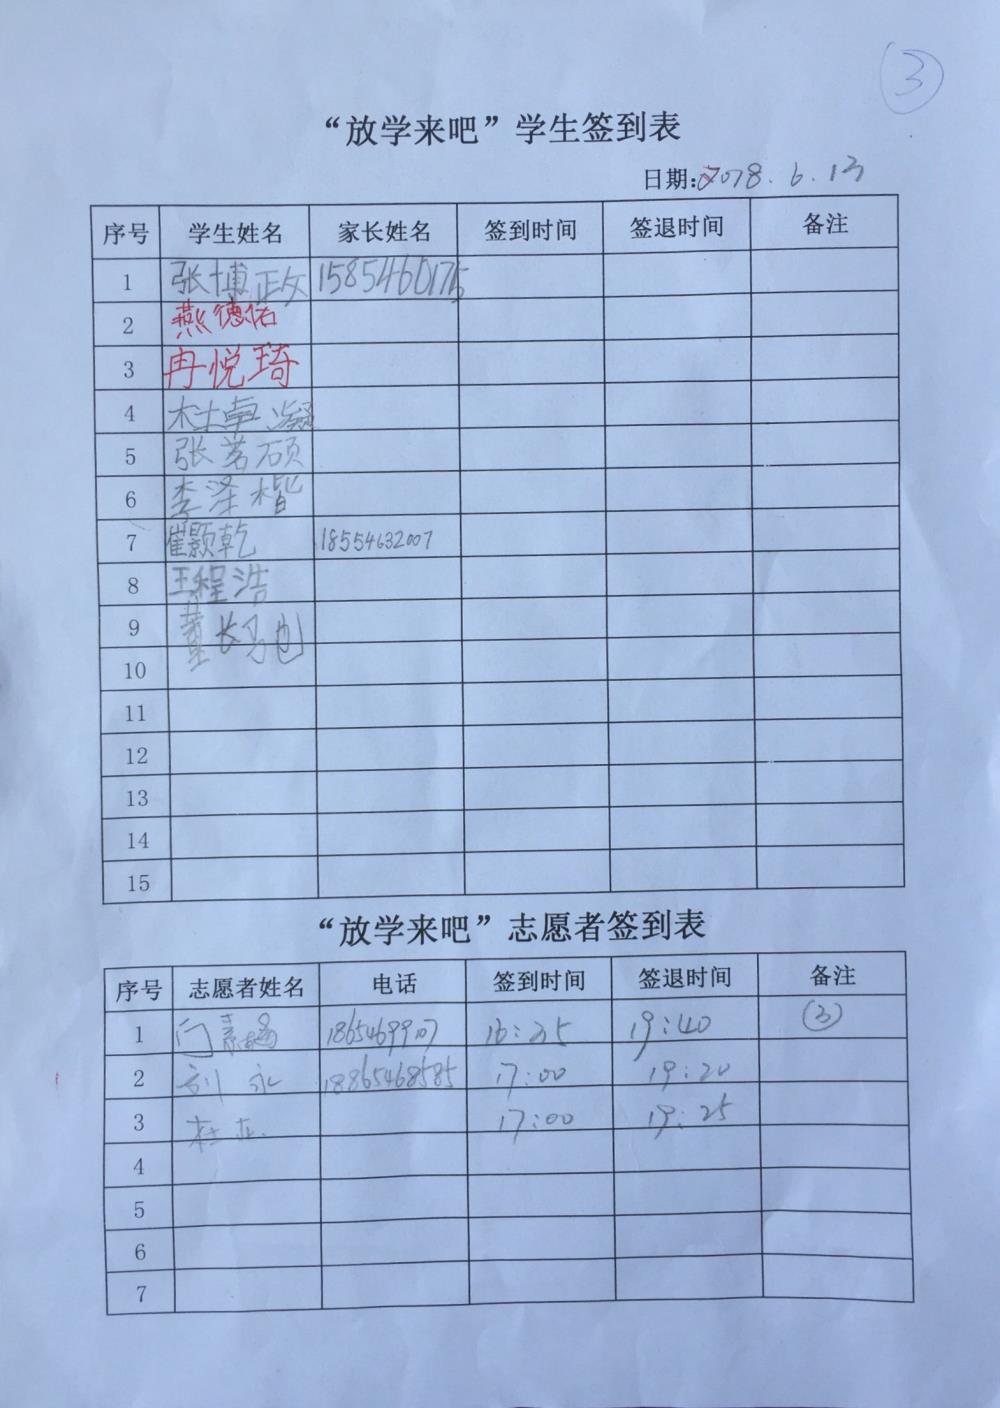 3
“放学来吧”学生签到表
日期:2018.6.13
序号 学生姓名 家长姓名 签到时间 签退时间 备注
1 张博政 1585460175
2 燕德佑
3 冉悦琦
4 杜卓凝
5 张茗硕
6 李泽楷
7 崔颢乾 18554632007
8 王程浩
9 董长驰
10
11
12
13
14
15
“放学来吧”志愿者签到表
序号 志愿者姓名 电话 签到时间 签退时间 备注
1 门素 1865469907 16:35 19:40 (3)
2 刘永 18865468585 17:00 19:20
3 杜 17:00 19:25
4
5
6
7